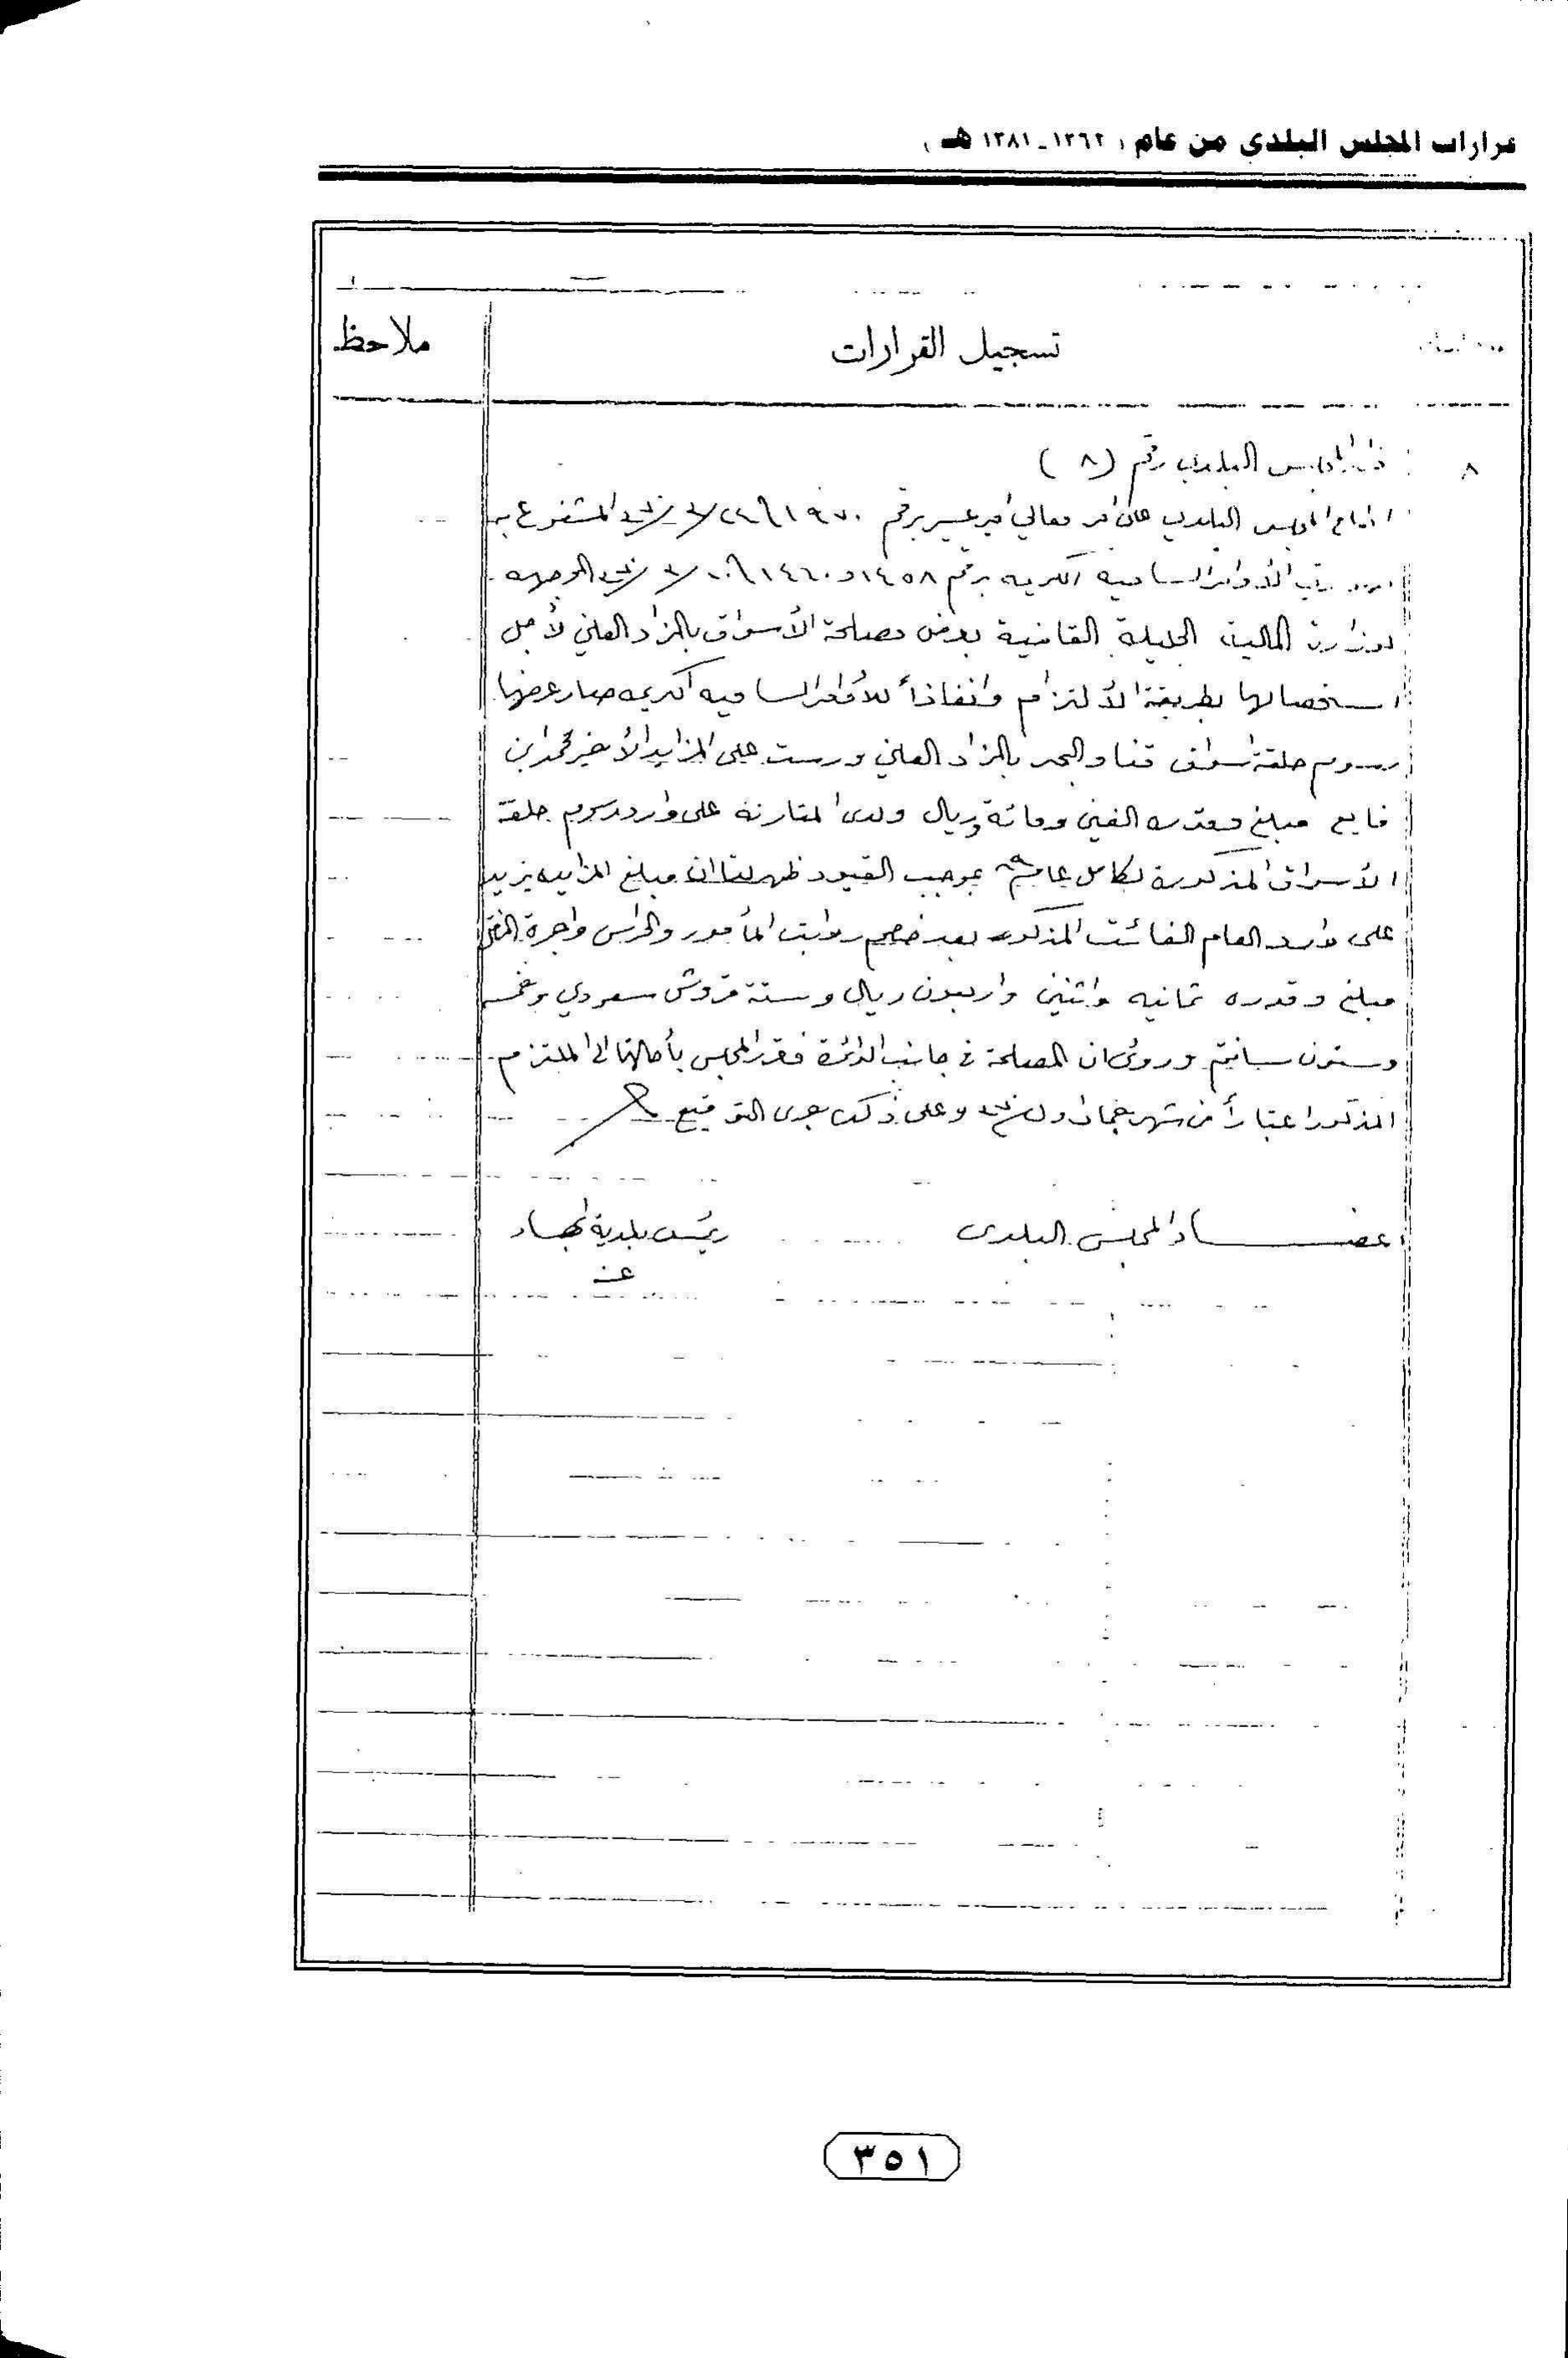 قرارات المجلس البلدى من عام ( ١٣٦٢ - ١٣٨١ هـ )
تسجيل القرارات
ملاحظ
٨
المجلس البلدي رقم ( ٨ )
المجلس البلدي على امر معالي امير عسير برقم ١٩٧٠ المشفوع به
الساميه الكريمه برقم ١٤٥٨ و ١٤٦٠ الموجهه
لوزارة المالية الجليلة القاضية بعرض مصلحة الأسواق بالمزاد العلني لأجل
استحصالها بطريقة الألتزام وانفاذاً للأوامر الساميه الكريمه صار عرضها
رسوم حلقة اسواق قنا والبحر بالمزاد العلني ورست على المزايد الأخير محمد ابن
فايع مبلغ وقدره الفين ومائة ريال ولدى المقارنه على وارد رسوم حلقة
الأسواق المذكورة لكامل عام بموجب القيود ظهر لنا ان مبلغ المزايده يزيد
على وارد العام الفائت المذكور بعد خصم رواتب المأمور والحراس واجرة
مبلغ وقدره ثمانيه واثنين واربعون ريال وستة قروش سعودي وخمسه
وستون سانتيم ورؤى ان المصلحة في جانب الدائرة فقرر المجلس بأحالتها الى الملتزم
المذكور اعتباراً من شهر جماد اول وعلى ذلك جرى التوقيع
اعضاء المجلس البلدى
رئيس بلدية ابها
عنه
٣٥١